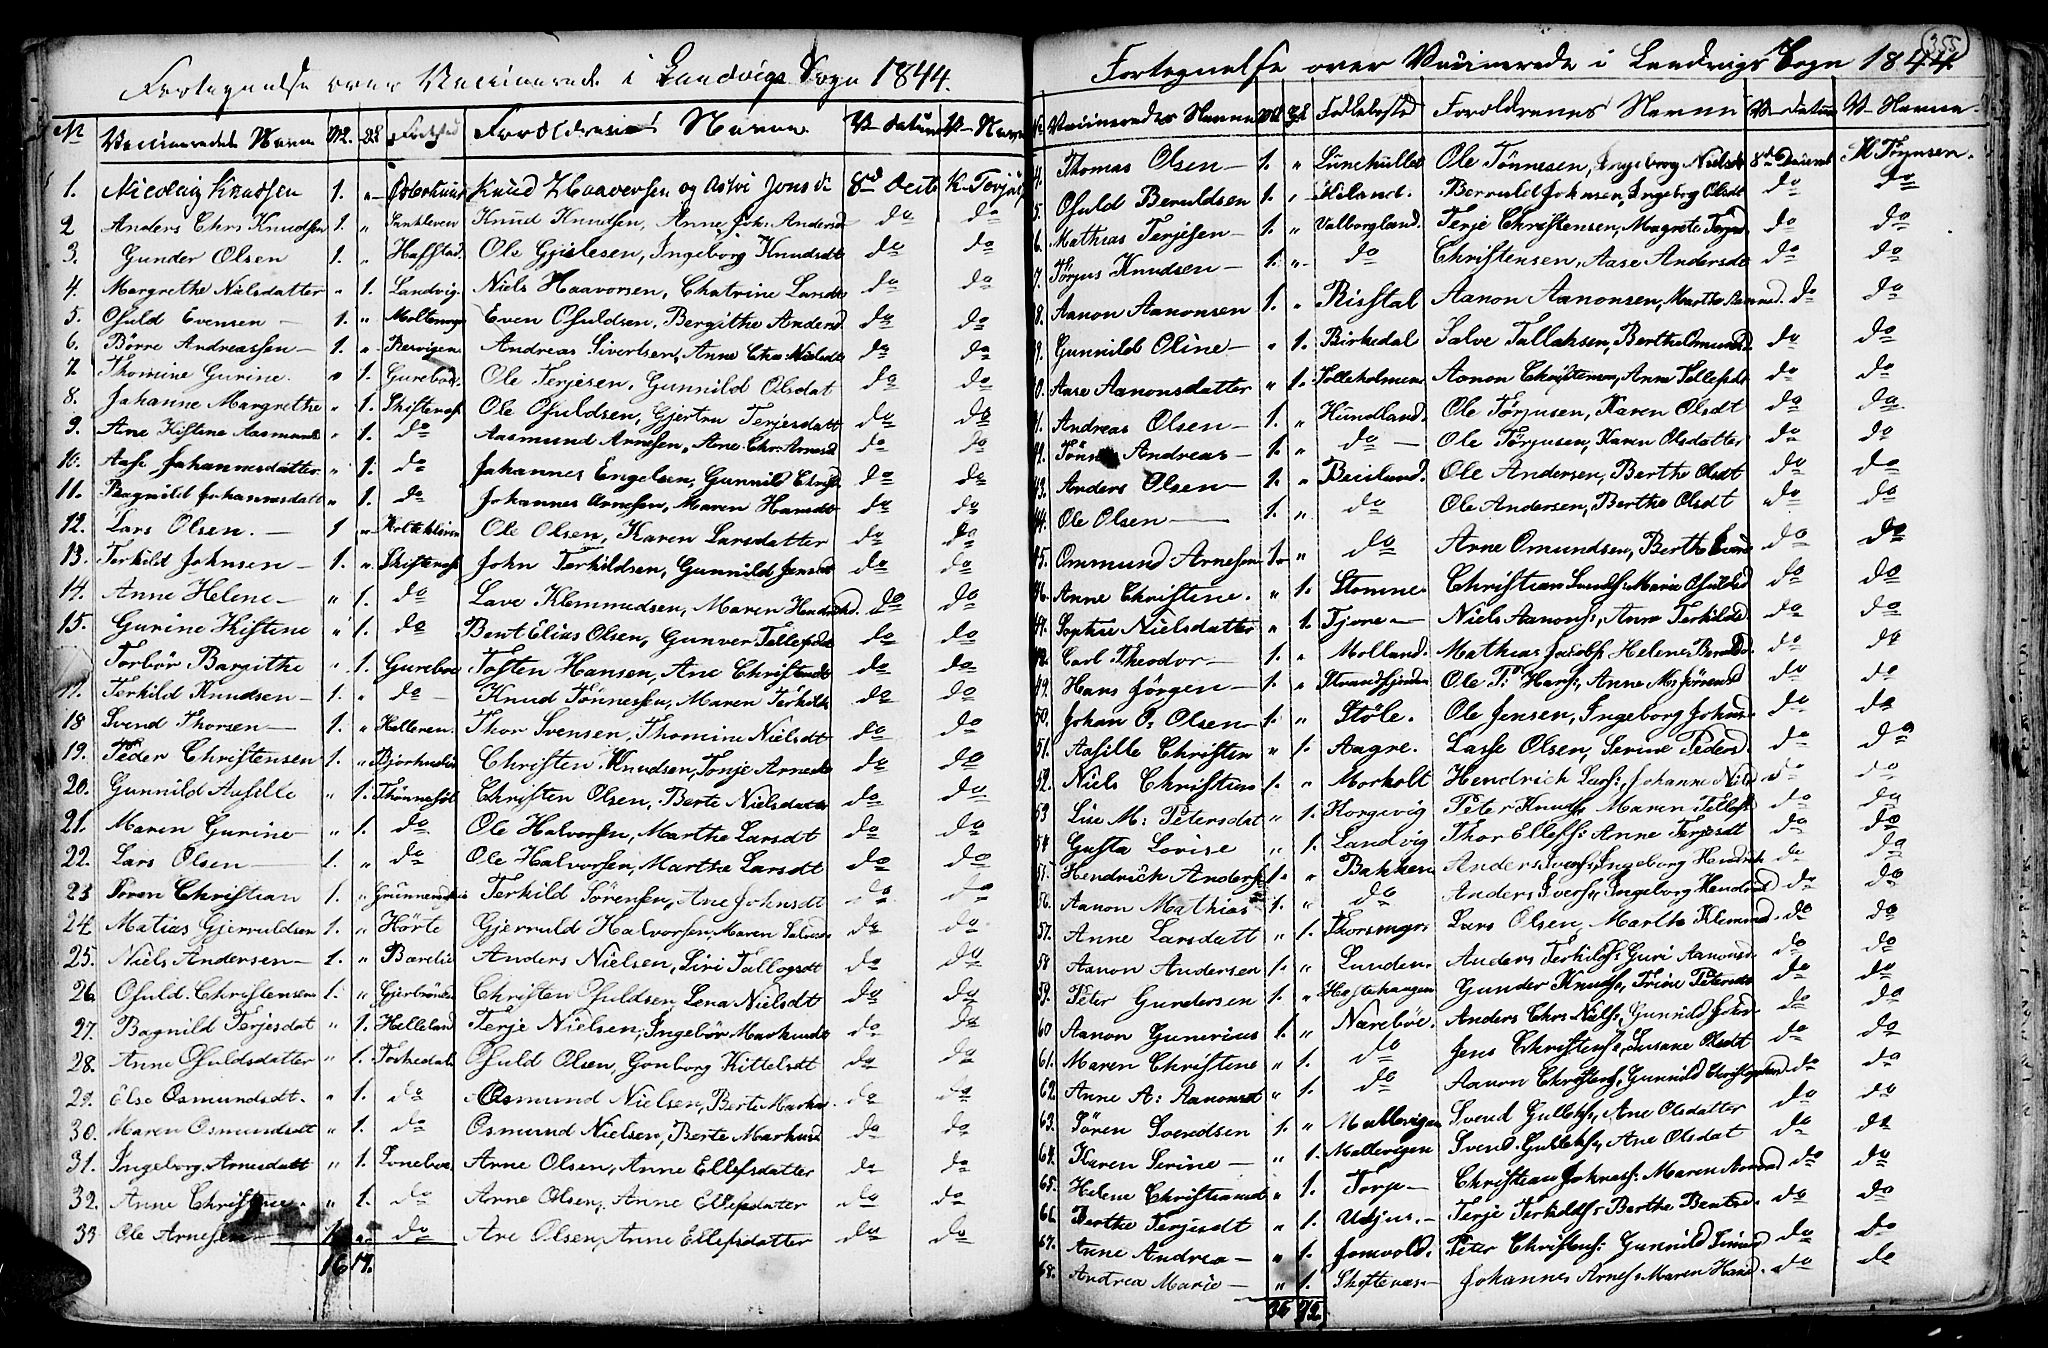 Fortegnelse over Vaccinerede i Landvigs Sogn 1844.
No Vaccineredes Navne M. Forældrenes Navne V. datum V. Navne
1. Nicolaig Knudsen 1. „ Knud Haavorsen og
2 Anders Chrs Knudsen 1. „ Knud Knudsen, Anne Joh. Andersd do do
3. Gunder Olsen 1. „ Haffstad Ole Gjislesen, Ingeborg Knudsdt do do
4. Margrethe Nielsdatter „ 1. Landvig. Niels Haavorsen, Chatrine Larsdt do do
5. Osuld Evensen 1. „ Even Osuldsen, Bergithe Andersd. do do
6. Börre Andreassen 1. „ Rervigen Andreas Sivertsen, Anne Cha: Nielsdt do do
7. Thomine Gurine. „ 1. Gurebo. Ole Terjesen, Gunnild Olsdat do do
8. Johanne Margrethe „ 1. Skiftenes Ole Osuldsen, Gjertru Terjesdatt do do
9. Ane Kistine Aasmunds „ 1. do Aasmund Arnesen, Ane Chr. Arnesd do do
10. Aase Johannesdatter „ 1. do Johannes Engelsen, Gunnild do do
11. Ragnild Johannesdatt „ 1. do Johannes Arnesen, Maren Hansdt do do
12. Lars Olsen. 1 „ Ole Olsen, Karen Larsdatter do do
13. Terkild Johnsen 1. „ Skiftenes John Terkildsen, Gunnild Jensdt do do
14. Anne Helene „ 1. do Lave Klemmedsen, Maren Hendriksd. do do
15. Gurine Kistine „ 1. do Bent Elias Olsen, Gunver Tallefsdt do do
Torbör Bargithe „ 1. Gurebo Tosten Hansen, Ane Christensdt do do
17. Terkild Knudsen 1. „ do Knud Tönnessen, Maren Terkilds do do
18 Svend Thorsen 1. „ Halleren. Thor Svensen, Thomine Nielsdt do do
19. Peder Christensen 1. „ Christen Knudsen, Tonje Arnesdt do do
20. Gunnild Asille „ 1. Christen Olsen, Berte Nielsdatter do do
21. Maren Gurine „ 1. do Ole Halvorsen, Marthe Larsdt do do
22. Lars Olsen 1. „ do Ole Halvorsen, Marthe Larsdt do do
23 Sören Christian 1. „ Terkild Sörensen, Ane Johnsdt do do
24. Matias Gjeruldsen 1. „ Hörte Gjeruld Halvorsen, Maren Salves do do
25. Niels Andersen 1. „ Anders Nielsen, Siri Tallogsdt do do
26. Osuld Christensen 1. „ Christen Osuldsen, Lena Nielsdt do do
27. Ragnild Terjesdat „ 1. Halleland Terje Nielsen, Ingebör Markusdt do do
28. Anne Osuldsdatter „ 1. Torkedal Osuld Olsen, Gonborg Kittelsdt do do
29. Else Osmundsdt. „ 1. do Osmund Nielsen, Berte Markus. do do
30. Maren Osmundsdt „ 1. do Osmund Nielsen, Berte Markusd do do
31. Ingeborg Arnesdatt „ 1. Arne Olsen, Anne Ellefsdatter do do
32. Anne Christine. „ 1. do Arne Olsen, Anne Ellefsdatter do do
33 Ole Arnesen 1. „ do Are Olsen, Anne Ellefsdatter do do
16 17.
355
Fortegnelse over Vaccinerede i Landvigs Sogn 1844.
Vaccineredes Navne Födested Foreldrenes Navne V. datum V. Navne.
4. Thomas Olsen 1. „ Ole Tönnesen, Ingeborg Nielsdt
5. Osuld Beruldsen 1. „ Beruld Johnsen, Ingeborg Olsdt do do
6. Mathias Terjesen 1. „ Valborgland. Terje Christensen, Magrete Terjesd do do
7. Törjus Knudsen 1. „ do Christensen, Aase Andersdt do do
8. Aanon Aanonsen 1. „ Risstal Aanon Aanonsen, Marthe do do
9. Gunnild Oline „ 1. Birkedal Salve Tallaksen, Berthe Omunds do do
0. Aase Aanonsdatter „ 1. Tolleholmen Aanon Christensen, Anne Tellefsdt do do
41. Andreas Olsen 1. „ Hundland. Ole Törjusen, Karen Olsdt do do
42. Andreas 1. „ do Ole Törjusen, Karen Olsdatter do do
43. Anders Olsen 1. „ Beislund. Ole Andersen, Berthe Olsdt do do
44. Ole Olsen 1. „ do Ole Andersen, Berthe Olsdt do do
45. Ommund Arnesen 1. „ do Arne Omundsen, Berthe do do
46. Anne Christine. „ 1. Stomne. Christian Svends: Maria Osuldsd do do
47. Sophie Nielsdatter „ 1. Tjore Niels Aanons: Anne Terkilds do do
48. Carl Theodor 1. „ Molland. Mathias Jacobs: Helene do do
49. Hans Jörgen 1. „ Ole T: Hans: Anne do do
50. Johan O: Olsen 1. „ Stöle. Ole Jensen, Ingeborg Johns. do do
51. Aasille Christin „ 1. Aagre. Lasse Olsen, Serine Peders. do do
52. Niels Christian 1. „ Morholt Hendrich Lars: Johanne Niels do do
53 Lise M: Petersdat „ 1. Korgevig Peter Knuds: Maren Tellefs do do
54 Gusta Lovise „ 1. Landvig Thor Ellefs: Anne Terjesdt do do
55. Hendrich Anders 1. „ Bakken Anders Svens: Ingeborg Hendrik do do
56. Aanon Mathias 1. „ do Anders Svens: Ingeborg Hendriks do do
57. Anne Larsdatt „ 1. Lars Olsen, Marthe Klemmed. do do
58 Aanon Andersen 1. „ Lunden. Anders Terkilds: Guri Aanonsd. do do
59. Peter Gundersen 1. „ Gunder Knuds: Trine Petersdt do do
60 Aanon Gunerius 1. „ Nareböe. Anders Chrs Niels: Gunnild Johs do do
61. Maren Christine „ 1. do Jens Christens: Susane Olsdt do do
62. Anne A: Aanonsdt „ 1. do Aanon Christens: Gunnild do do
63. Sören Svendsen 1. „ Mallevigen Svend Gulleks: Ane Olsdatter do do
64. Karen Serine „ 1. Mallevigen Svend Gulleks: Ane Olsdat do do
65. Helene Christiansdt „ 1. Torp Christian Johnes: Maren do do
66. Berthe Terjesdt „ 1. Udjus. Terje Terkilds: Berthe Bentsd. do do
67. Anne Andrea „ 1. Jomvold. Peter Christens: Gunnild do do
68. Andrea Marie „ 1. Skiftenes Johannes Arnes: Maren Hansd. do do